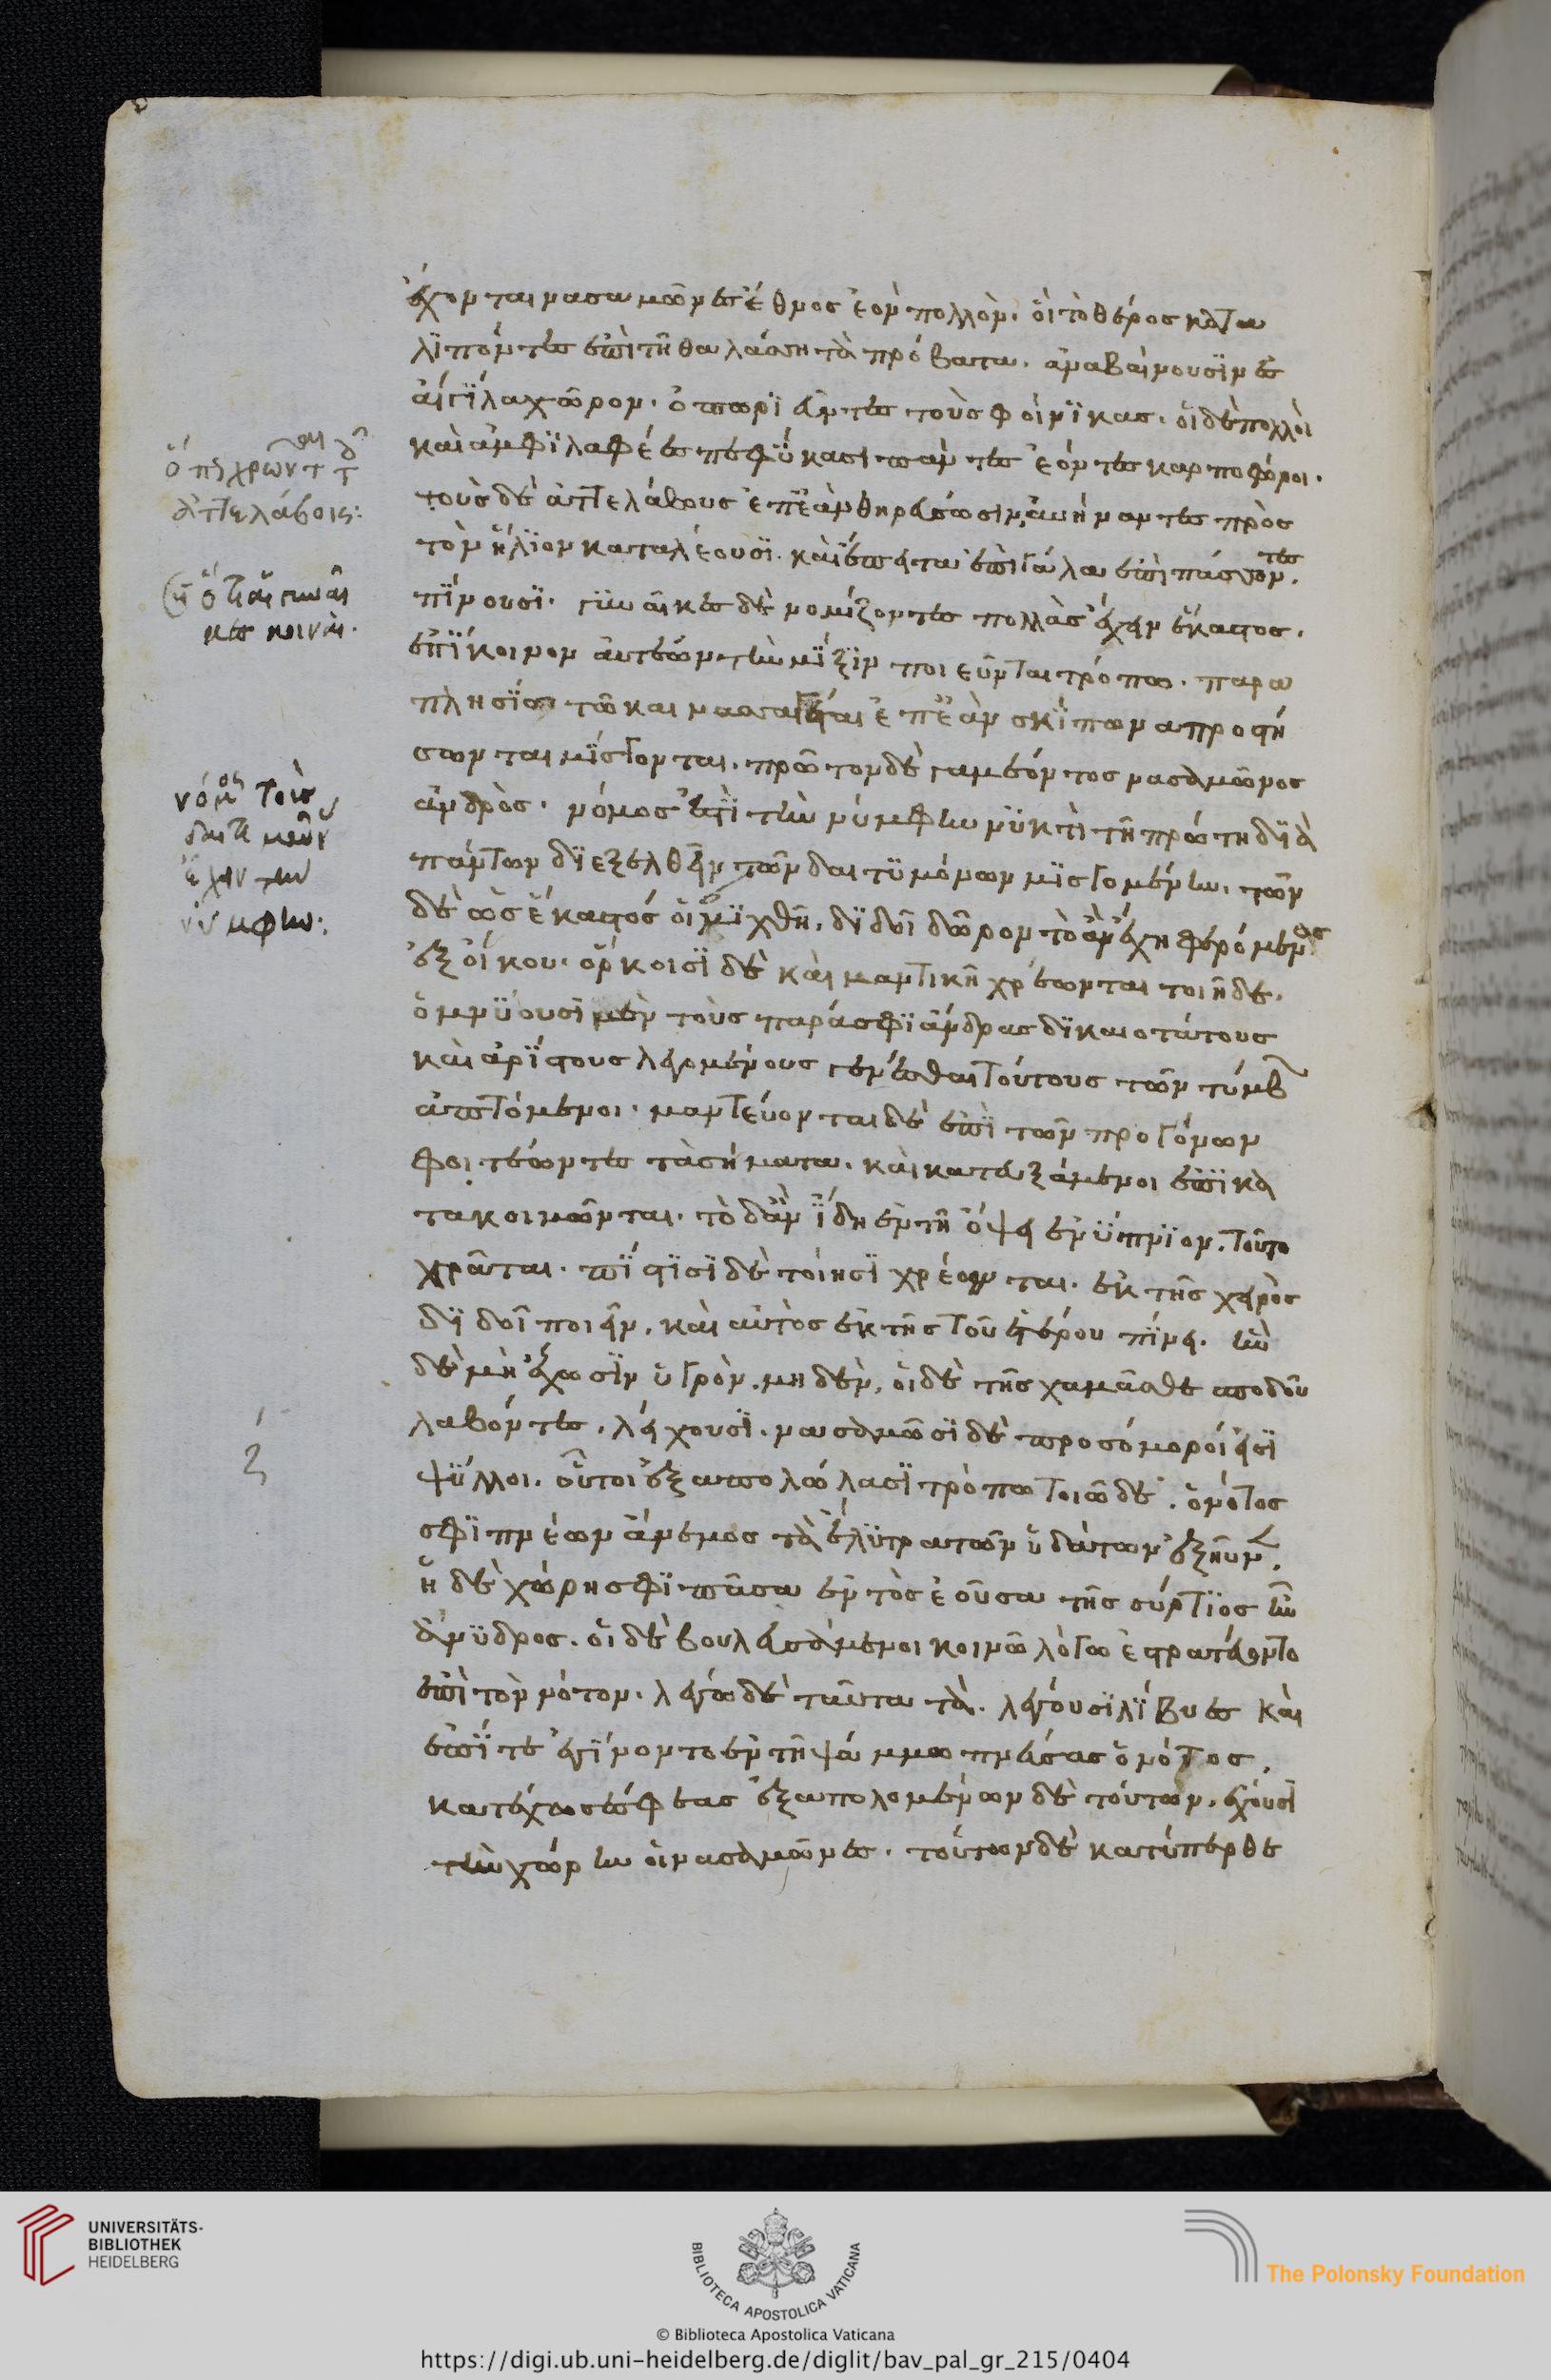 ἔχονται νασαμῶνες ἔθνος ἐὸν πολλὸν. οἳ τὸ θέρος κατα
λιπόντες ἐπὶ τῆ θαλάσση τὰ πρόβατα. ἀναβαίνουσιν ἐς
αἴγιλα χῶρον. ὀπωριεῦντες τοὺς φοίνικας. οἱ δὲ πολλοὶ
καὶ ἀμφιλαφέες πεφύκασι πάντες ἐόντες καρποφόροι.
τοὺς δὲ ἀττελάβους ἐπεὰν θηρεύσωσιν, αὐήναντες πρὸς
τὸν ἥλιον καταλέουσι. καὶ ἔπειτα ἐπὶ γάλα ἐπιπάσσοντες.
πίνουσι. γυναῖκες δὲ νομίζοντες πολλὰς ἔχειν ἕκαστος.
ἐπίκοινον αὐτέων τὴν μίξιν ποιεῦνται τρόπω. παρα
πλησίω τῶ και μασσαγέται ἐπεὰν σκίπωνα προστή
σωνται μίσγονται. πρῶτον δὲ γαμέοντος νασαμῶνος
ἀνδρὸς. νόμος ἐστὶ τὴν νύμφην νυκτὶ τῆ πρώτη διὰ
πάντων διεξελθεῖν τῶν δαιτυμόνων μισγομένην. τῶν
δὲ ὡς ἕκαστός οἱ μιχθῆ. διδοῖ δῶρον τὸ ἂν ἔχη φερόμενος
ἐξ οἴκου. ὅρκοισι δὲ καὶ μαντικῆ χρέωνται τοιῆδε.
ὀμνύουσι μὲν τοὺς παρά σφι ἄνδρας δικαιοτάτους
καὶ ἀρίστους λεγομένους γενέσθαι τούτους τῶν τύμβ
ἁπτόμενοι. μαντεύονται δὲ ἐπὶ τῶν προγόνων
φοιτέωντες τὰ σήματα. καὶ κατευξάμενοι ἐπικα
τακοιμῶνται. τὸ δ᾽ ἂν ἴδη ἐν τῆ ὄψει ἐνύπνιον. τοῦτο
χρᾶται. πίστισι δὲ τοίησι χρέωνται. ἐκ τῆς χειρὸς
διδοῖ πιεῖν. καὶ αὐτὸς ἐκ τῆς τοῦ ἑτέρου πίνει. ἢν
δὲ μὴ ἔχωσιν ὑγρὸν. μηδὲν. οἱ δὲ τῆς χαμᾶθε σποδοῦ
λαβόντες. λείχουσι. νασαμῶσι δὲ προσόμοροί εἰσι
ψύλλοι. οὗτοι ἐξαπολώλασι τρόπω τοιῶδε. ὁ νότος
σφι πνέων ἄνεμος τὰ ἔλυτρα τῶν ὑδάτων ἐξηύην.
ἡ δὲ χώρη σφι πᾶσα ἐντὸς ἐοῦσα τῆς σύρτιος ἦν
ἄνυδρος. οἱ δὲ βουλευσάμενοι κοινῶ λόγω ἐστρατεύοντο
ἐπὶ τὸν νότον. λέγω δὲ ταῦτα τὰ. λέγουσι λίβυες καὶ
ἐπί τε ἐγίνοντο ἐν τῆ ψάμμω πνεύσας ὁ νότος.
κατέχωσέ σφεας ἐξαπολομένων δὲ τούτων. ἔχουσι
τὴν χώρην οἱ νασαμῶνες. τούτων δὲ κατύπερθε
ἀττελάβοις:
νόμος τοὺς
ἔχειν την
νύμφην:
UNIVERSITÄTS-
BIBLIOTHEK
HEIDELBERG
BIBLIOTECA APOSTOLICA VATICANA
The Polonsky Foundation
© Biblioteca Apostolica Vaticana
https://digi.ub.uni-heidelberg.de/diglit/bav_pal_gr_215/0404